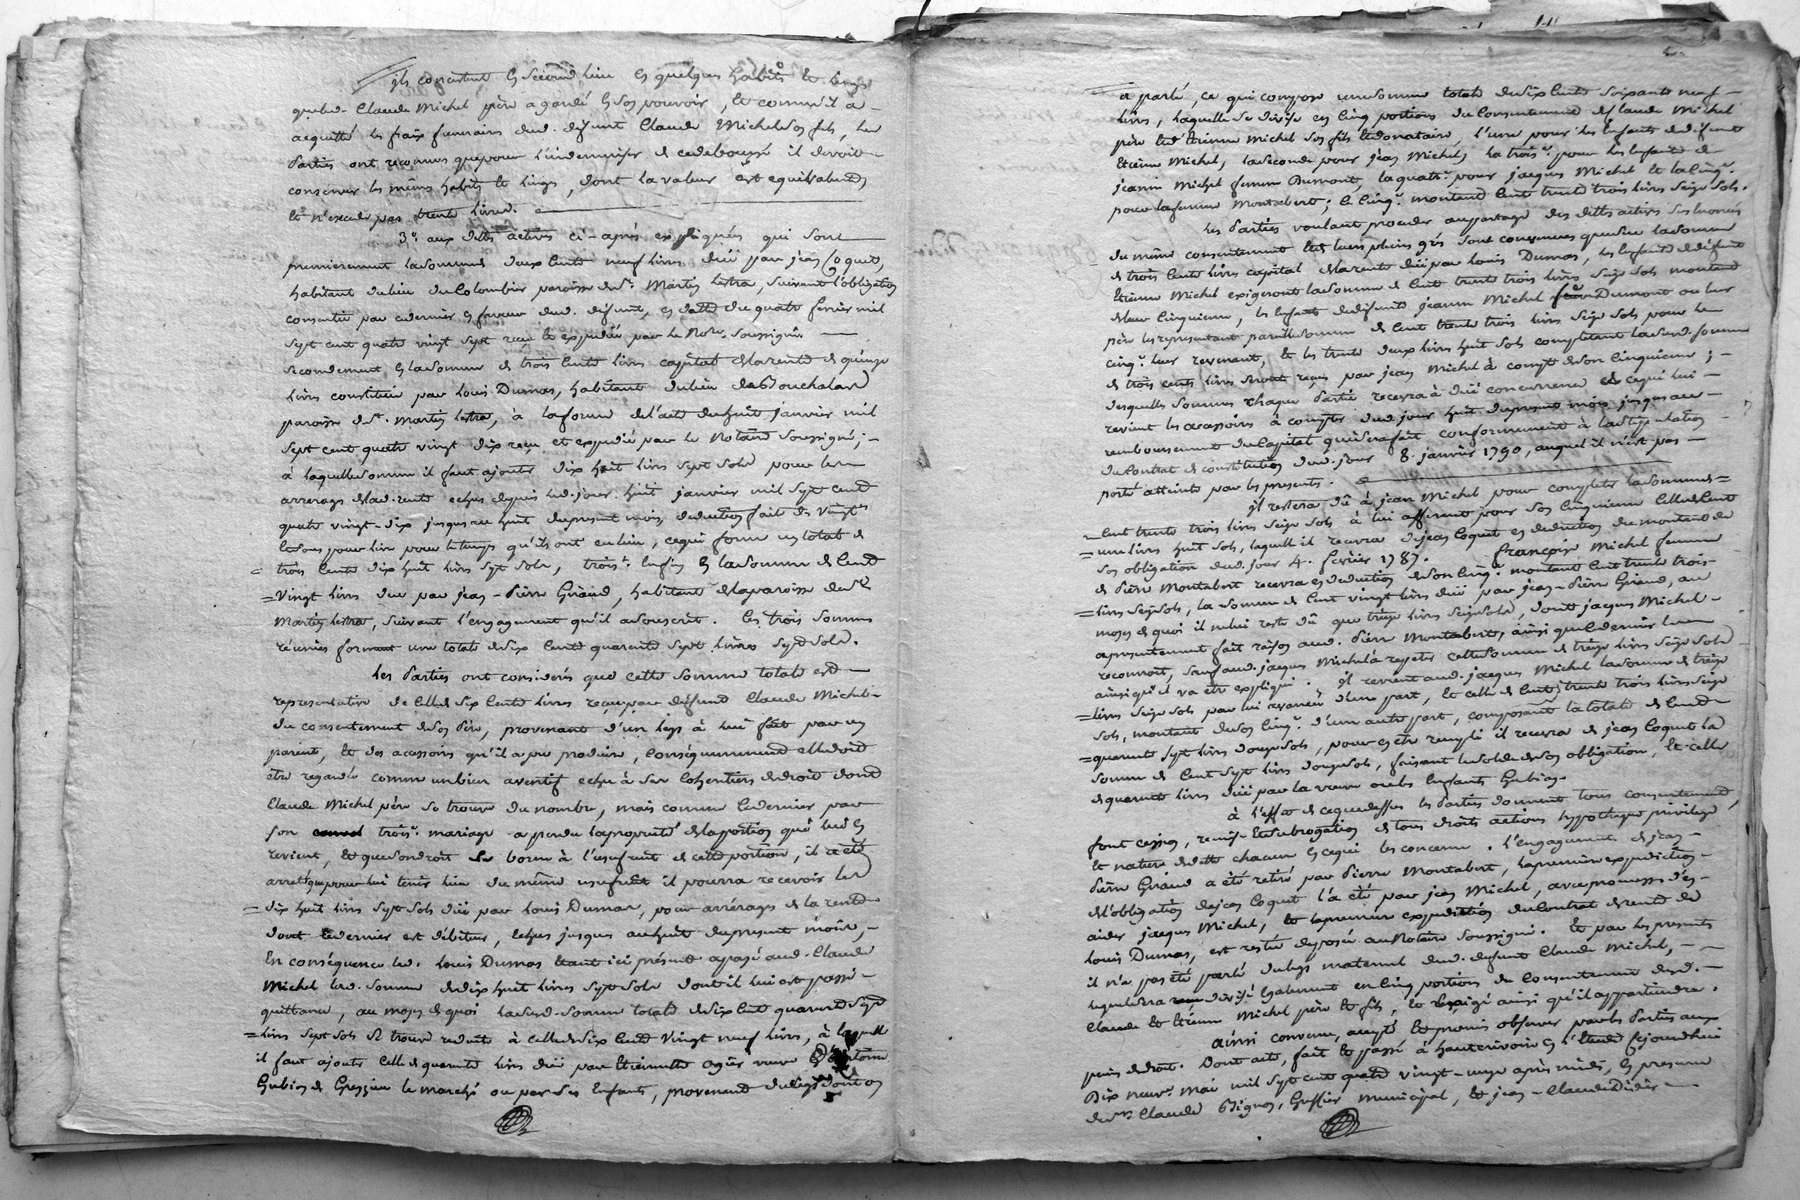 ils consistent en second lieu en quelques habits et linges
que led. Claude Michel père a gardé en son pouvoir, et comme il a
acquitté les fraix funeraires dud. défunt Claude Michel son fils, les
parties ont reconnu que pour l'indemniser de ce déboursé il devoit
conserver les mêmes habits et linges, dont la valeur est equivalente
et n'excede pas trente livres.
3.° aux dettes actives ci-après expliquées qui sont
premierement la somme deux cents neuf livres düe par jean Coquet,
habitant du lieu du Colombier paroisse de St. Martin lestra, suivant l'obligation
consentie par ce dernier en faveur dud. défunt, en datte du quatre fevrier mil
sept cent quatre vingt sept reçue et expediée par le Notre. soussigné.
secondement en la somme de trois cents livres capital de la rente de quinze
livres constituée par Louis Dumas, habitant du lieu de Bouchalas
paroisse de St. Martin lestra, à la forme de l'acte du huit janvier mil
sept cent quatre vingt dix reçu et expedié par le Notaire soussigné;
à laquelle somme il faut ajouter dix huit livres sept sols pour les
arrerages de lad. rente echus depuis led. jour huit janvier mil sept cent
quatre vingt-dix jusques au huit du present mois, deduction fait des vingt
les sous pour livre pour le temps qu'ils ont eu lieu, ce qui forme un total de
= trois cents dix huit livres sept sols, trois.e enfin en la somme de cent
= vingt livres due par jean-Pierre Giraud, habitant de la paroisse de St.
Martin lestra, suivant l'engagement qu'il a souscrit. Ces trois sommes
réunies forment une totale de six cents quarante sept livres sept sols.
Les Parties ont consideré que cette somme totale est
representative de celle de six cents livres reçue par défunt Claude Michel
du consentement de son père, provenant d'un legs à lui fait par un
parent, et des accessoirs qu'il a pu produire, conséquemment elle doit
etre regardée comme un bien aventif echu à ses cohéritiers de droit dont
Claude Michel père se trouve du nombre, mais comme ce dernier par
son trois.e mariage a perdu la propriété de la portion qui lui en
revient, et que son droit se borne à l'usufruit de cette portion, il a été
arreté que pour lui tenir lieu du même usufruit il pourra recevoir les
= dix huit livres sept sols düe par Louis Dumas, pour arrérages de la rente
dont ce dernier est débiteur, echus jusques au huit du present mois,
En conséquence led. Louis Dumas etant ici présent a payé aud. Claude
Michel lad. somme de dix huit livres sept sols dont il lui est passé
quittance, au moyen de quoi lasusd. somme totale de six cent quarante sept
= livres sept sols se trouve reduite à celle de six cent vingt neuf livres, à laquelle
il faut ajouter celle de quarante livres düe par Etiennette veuve d'Antoine
Gubian de le marché ou par ses Enfants, provenant du legs dont on
a parlé, ce qui compose une somme totale de six cents soixante neuf
livres, laquelle se divise en cinq portions du consentement de Claude Michel
père et d'Etienne Michel son fils et donataire, l'une pour les enfants de défunt
Etienne Michel, la seconde pour jean Michel, la trois.e pour les enfants de
jeanne Michel femme Dumont, la quatr.e pour jacques Michel et la cinq.e
pour la femme Montabert; le cinq.e montant cent trente trois livres seize sols.
Les Parties voulant proceder au partage des dettes actives sus énoncées
du même consentement et de leurs pleins grés sont convenues que sur la somme
de trois cents livres capital de la rente düe par Louis Dumas, les enfants de défunt
Etienne Michel exigeront la somme de cent trente trois livres seize sols montant
de leur cinquieme, les enfants de défunte jeanne Michel fe. Dumont ou leur
père les representant pareille somme de cent trente trois livres seize sols pour le
cinq.e leur revenant, et les trente deux livres huit sols completant lasusd. somme
de trois cents livres seront reçus par jean Michel à compte de son cinquieme;
desquelles sommes chaque Partie recevra à düe concurrence de ce qui lui
revient les accessoirs à compter dud. jour huit du present mois jusques au
remboursement du capital qui sera fait conformement à la stipulation
du contrat de constitution dud. jour 8. janvier 1790, auquel il n'est pas
porté atteinte par les presentes.
il restera dû à jean Michel pour completer la somme
= cent trente trois livres seize sols à lui afferente pour son cinquieme celle de cent
= une livres huit sols, laquelle il recevra de jean Coquet en deduction du montant de
son obligation dud. jour 4. fevrier 1787. françoise Michel femme
de Pierre Montabert recevra en deduction de son cinq.e montant cent trente trois
= livres seize sols, la somme de cent vingt livres düe par jean-Pierre Giraud, au
moyen de quoi il ne lui reste dû que treize livres seize sols, dont jacques Michel
a presentement fait raison aud. Pierre Montabert, ainsi que ce dernier le
reconnoit, sauf aud. jacques Michel à repeter cette somme de treize livres seize sols
ainsi qu'il va etre expliqué. Il revient aud. jacques Michel la somme de treize
= livres seize sols par lui avancée d'une part, et celle de cent trente trois livres seize
sols, montant de son cinq.e d'une autre part, composant la totale de cent
= quarante sept livres douze sols, pour en etre rempli il recevra de jean Coquet la
somme de cent sept livres douze sols, faisant le solde de son obligation, et celle
de quarante livres düe par la veuve ou les enfants Gubian.
à l'effet de ce que dessus les Parties donnent tous consentement,
font cession, remise et subrogation de tous droits actions hypotheque privilege
et nature de dette chacun en ce qui les concerne. L'engagement de jean-
Pierre Giraud a été retiré par Pierre Montabert, la premiere expedition
de l'obligation de jean Coquet l'a été par jean Michel, avec promesse d'en
aider jacques Michel, et la premiere expedition du contrat de rente de
Louis Dumas, est restée deposée au Notaire soussigné. Et par les presentes
il n'a pas été parlé du legs maternel dud. défunt Claude Michel,
lequel sera divisé également en cinq portions du consentement desd.
Claude et Etienne Michel père et fils, et exigé ainsi qu'il appartiendra.
ainsi convenu, accepté et promis observer par les Parties aux
peines de droit. Dont acte, fait et passé à hauterivoire en l'étude cejourdhui
Dix neuv.e mai mil sept cent quatre vingt-onze après midi, en presence
de Mre. Claude Bignon, Greffier municipal, et jean-Claude Didier